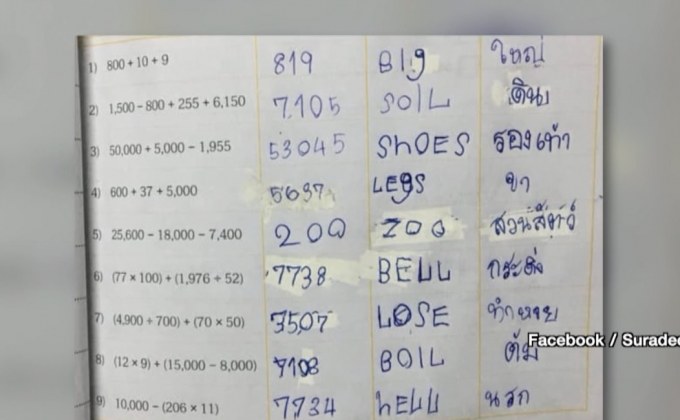 1) 800 + 10 + 9 819 BIg ใหญ่
2) 1,500 – 800 + 255 + 6,150 7,105 SOIL ดิน
3) 50,000 + 5,000 – 1,955 53045 ShOES รองเท้า
4) 600 + 37 + 5,000 5637 LEgS ขา
5) 25,600 – 18,000 – 7,400 200 ZOO สวนสัตว์
6) (77 × 100) + (1,976 ÷ 52) 7738 BELL กระดิ่ง
7) (4,900 ÷ 700) + (70 × 50) 3507 LOSE ทำหาย
Facebook / Surade
8) (12 × 9) + (15,000 – 8,000) 7108 BOIL ต้ม
9) 10,000 – (206 × 11) 7734 hELL นรก